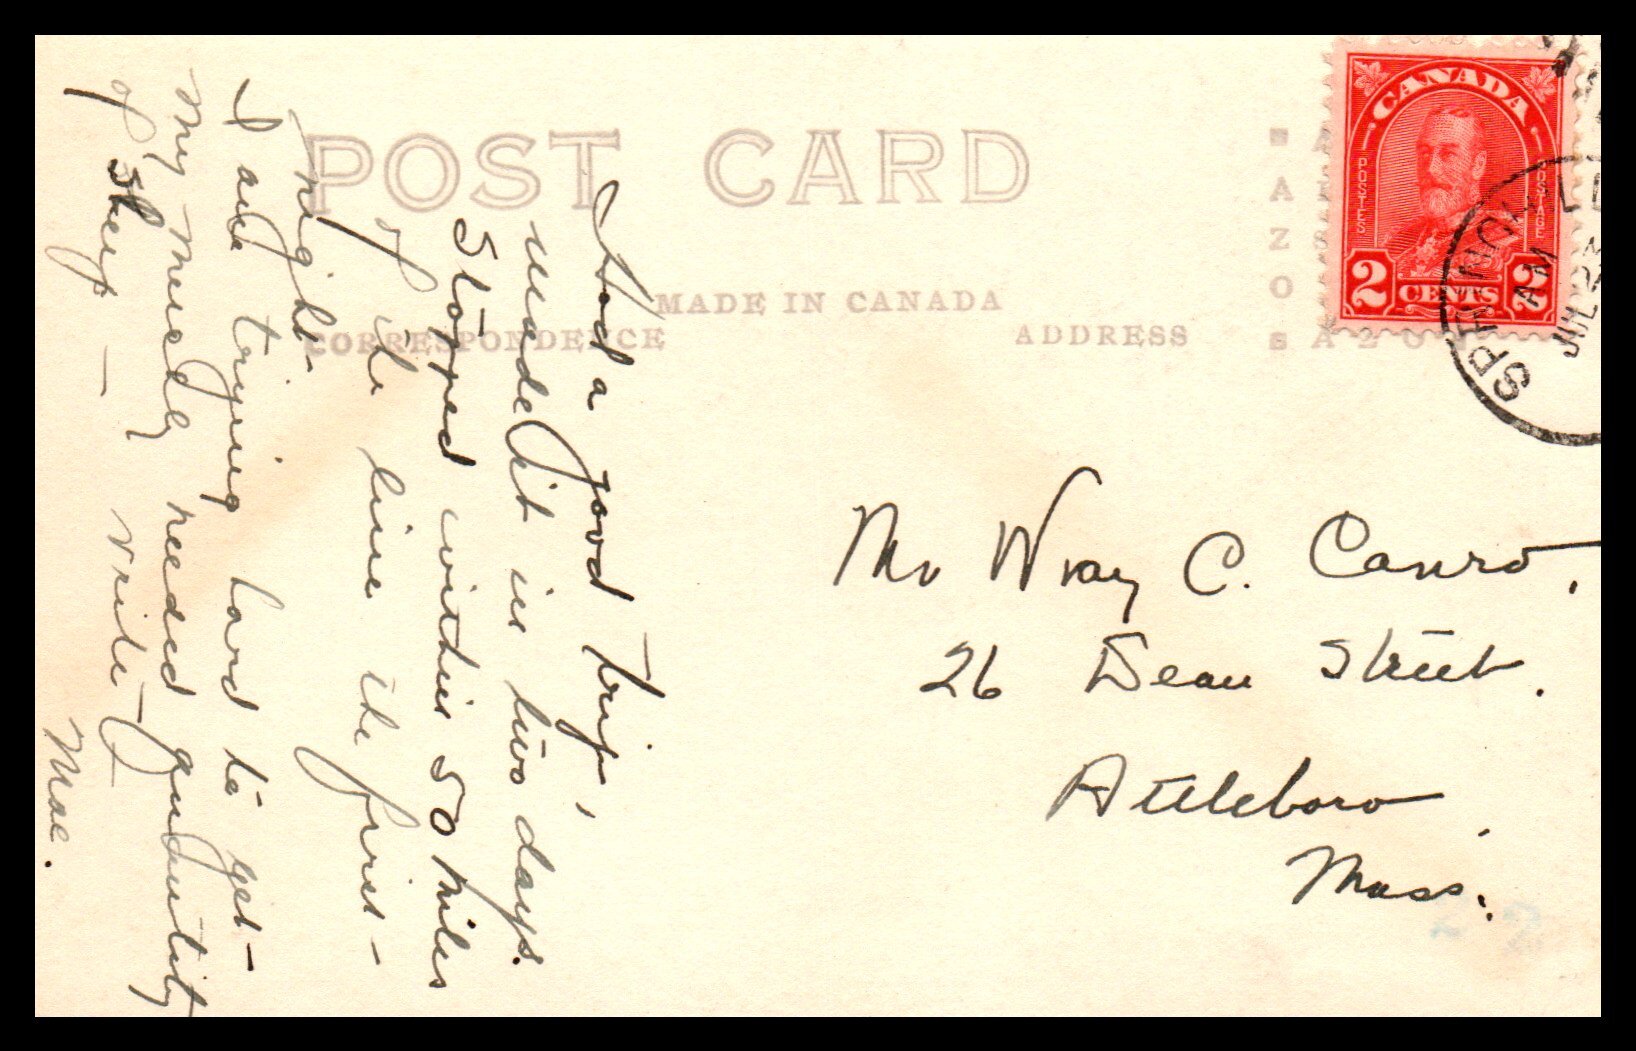 POST CARD
MADE IN CANADA
CORRESPONDENCE
ADDRESS
CANADA
POSTES
POSTAGE
2 CENTS 2
AM
JUL
Had a good trip,
made it in two days.
Stopped within 50 miles
of the line the first
night.
I am trying hard to get
my much needed quantity
of sleep — Write —
Mae.
Mr Wray C.
26 Dean Street.
Attleboro
Mass.